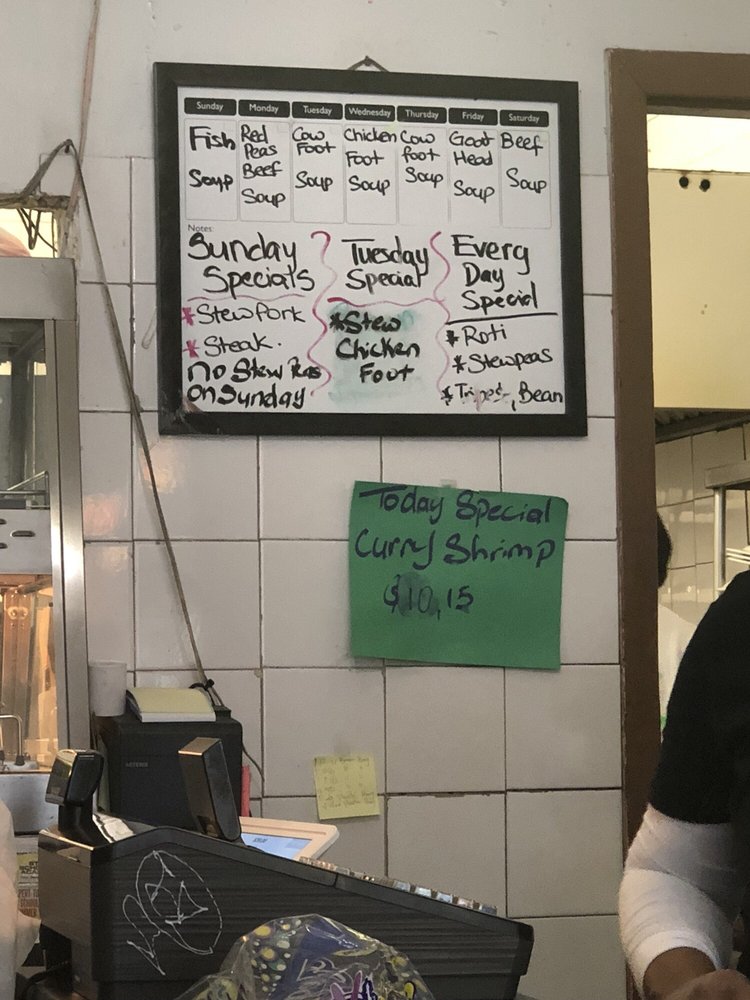 Sunday Monday Tuesday Wednesday Thursday Friday Saturday
Fish Soup
Red Peas Beef Soup
Cow Foot Soup
Chicken Foot Soup
Cow foot Soup
Goat Head Soup
Beef Soup
Notes:
Sunday
Specials
*Stew Pork
*Steak.
No Stew Peas
On Sunday
Tuesday
Special
*Stew
Chicken
Foot
Every
Day
Special
*Roti
*Stewpeas
*Tripe, Bean
Today Special
Curry Shrimp
$10,15